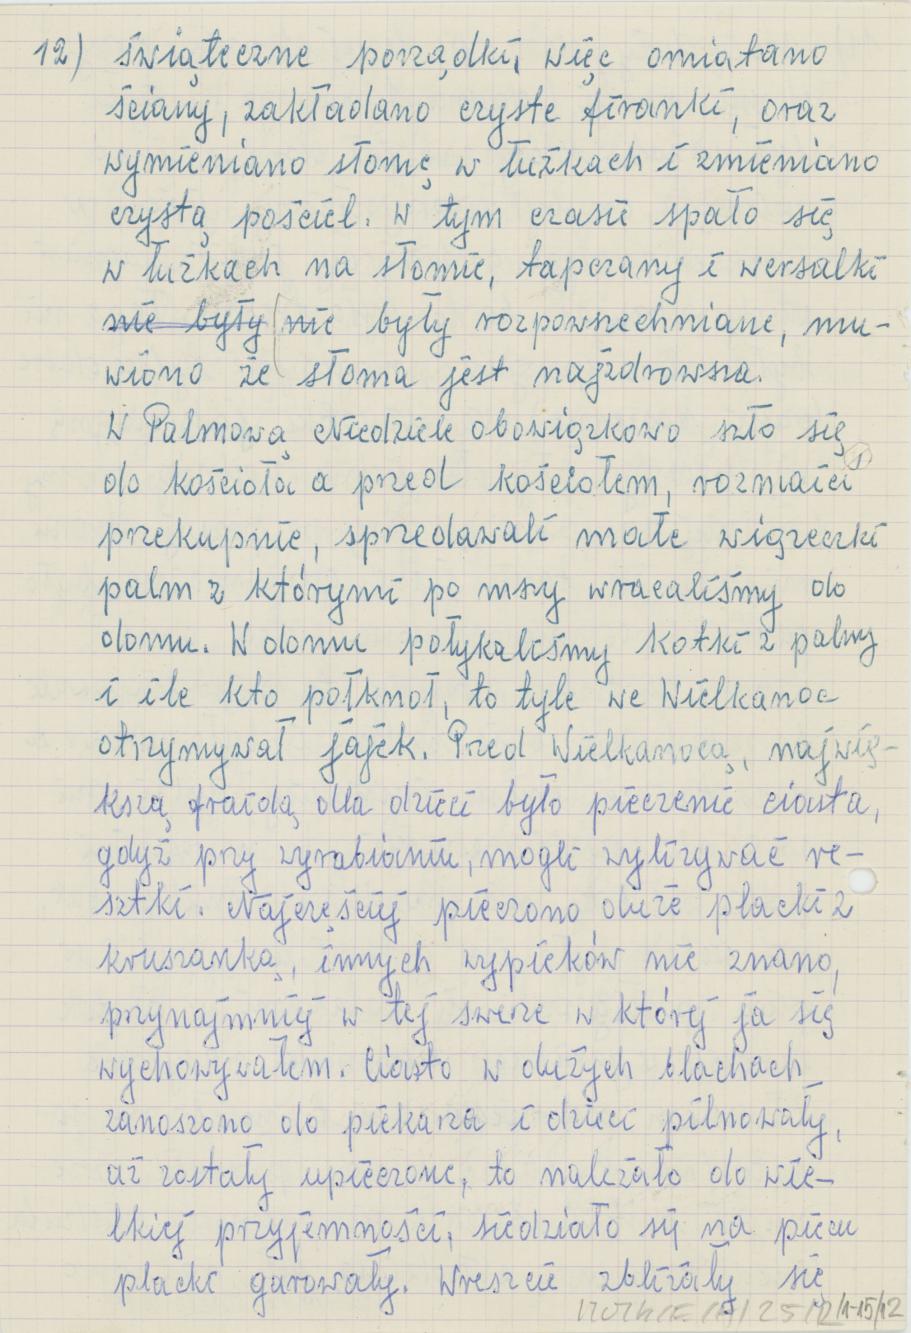 12) świąteczne porządki, więc omiatano
ściany, zakładano czyste firanki, oraz
wymieniano słomę w łużkach i zmieniano
czystą pościel. W tym czasie spało się
w łużkach na słomie, tapczany i wersalki
nie były nie były rozpowszechniane, mu-
wiono że słoma jest najzdrowsza.
W Palmową Niedziele obowiązkowo szło się
do kościoła a przed kościołem, rozmaici
przekupnie, sprzedawali małe wiązeczki
palm z którymi po mszy wracaliśmy do
domu. W domu połykaliśmy kotki z palmy
i ile kto połknoł, to tyle we Wielkanoc
otrzymywał jajek. Przed Wielkanocą, najwię-
kszą frajdą dla dzieci było pieczenie ciasta,
gdyż przy wyrabianiu, mogli wylizywać re-
sztki. Najczęściej pieczono duże placki z
kruszanką, innych wypieków nie znano,
przynajmniej w tej swerze w której ja się
wychowywałem. Ciasto w dużych blachach
zanoszono do piekarza i dzieci pilnowały,
aż zostały upieczone, to należało do wie-
lkiej przyjemności, siedziało się na piecu
placki garowały. Wreszcie zbliżały się